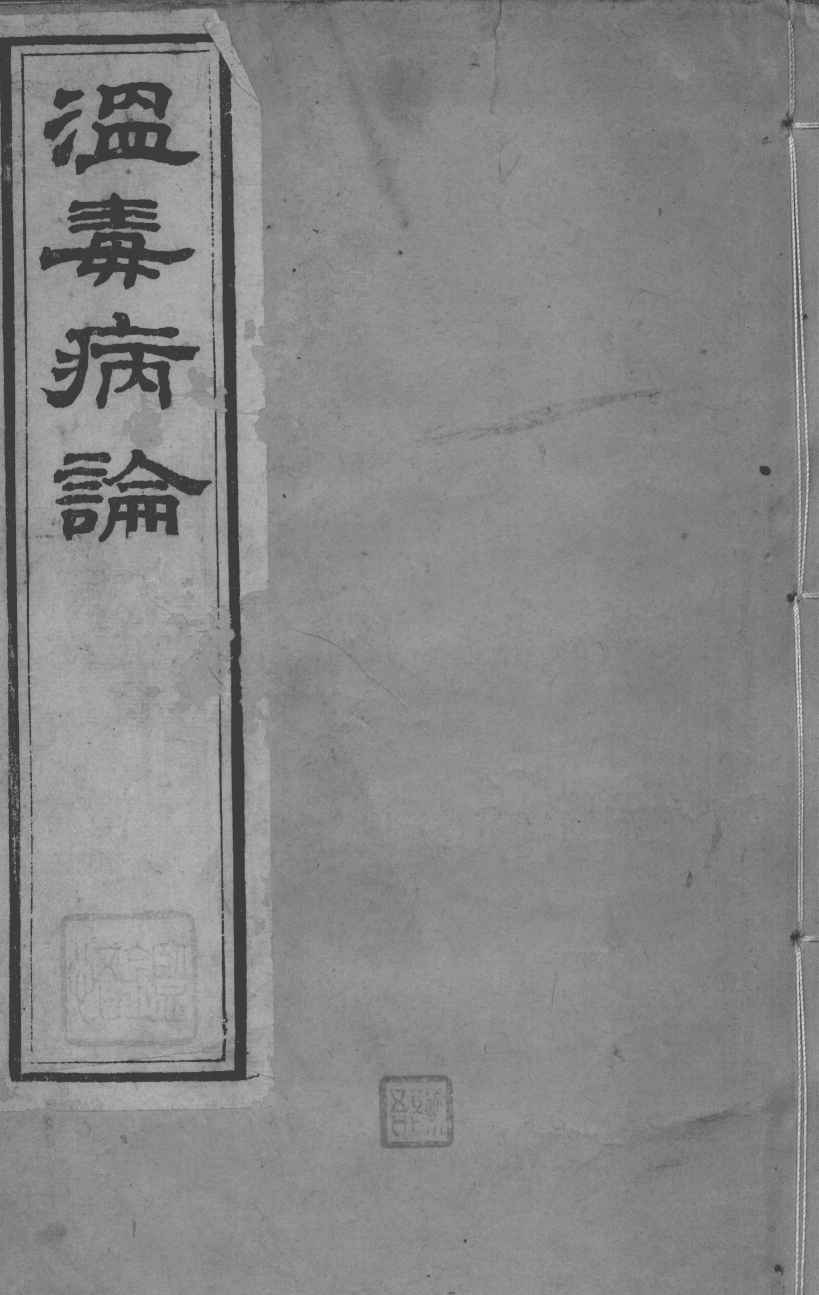 溫毒病論